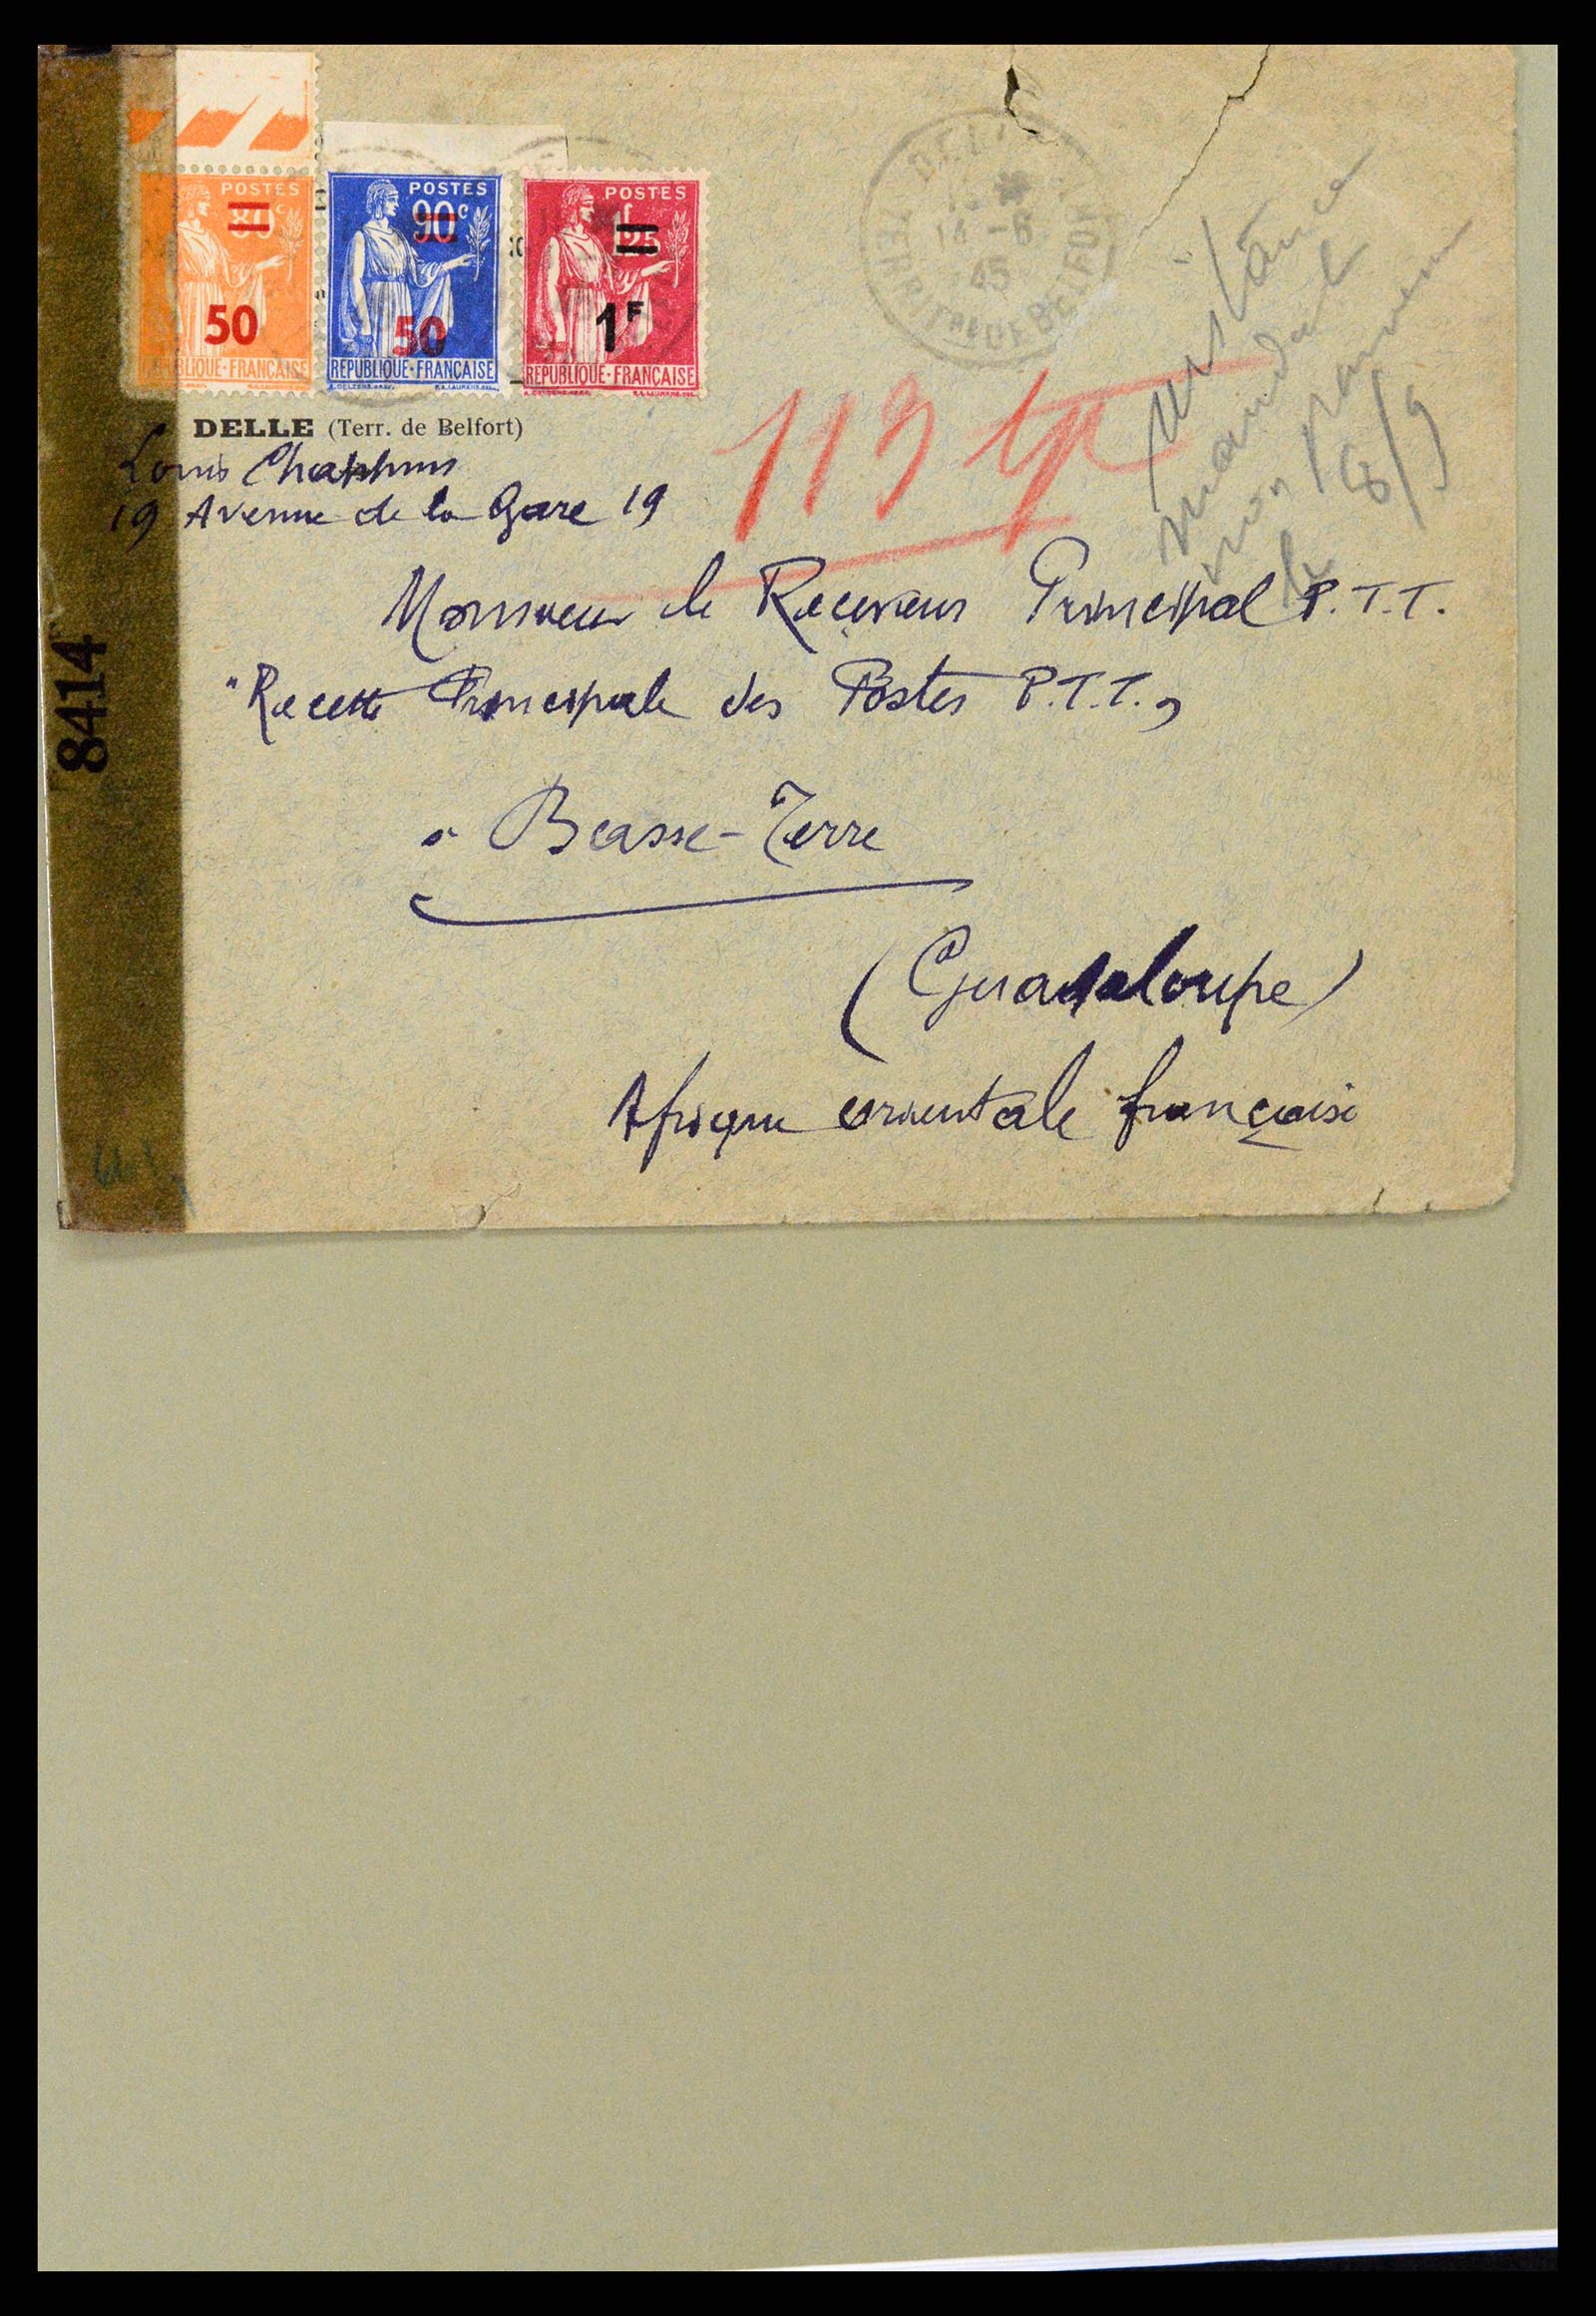 POSTES
80c
50
RÉPUBLIQUE·FRANÇAISE
POSTES
90c
50
RÉPUBLIQUE·FRANÇAISE
POSTES
1f 25
1F
RÉPUBLIQUE·FRANÇAISE
14 -6
45
TERRRE DE BELFORT
DELLE (Terr. de Belfort)
Louis Chappuis
19 Avenue de la Gare 19
113
mandat
8/9
8414
Monsieur le Receveur Principal P.T.T.
"Recette Principale des Postes P.T.T.,
à Basse-Terre
(Guadaloupe)
Afrique orientale française